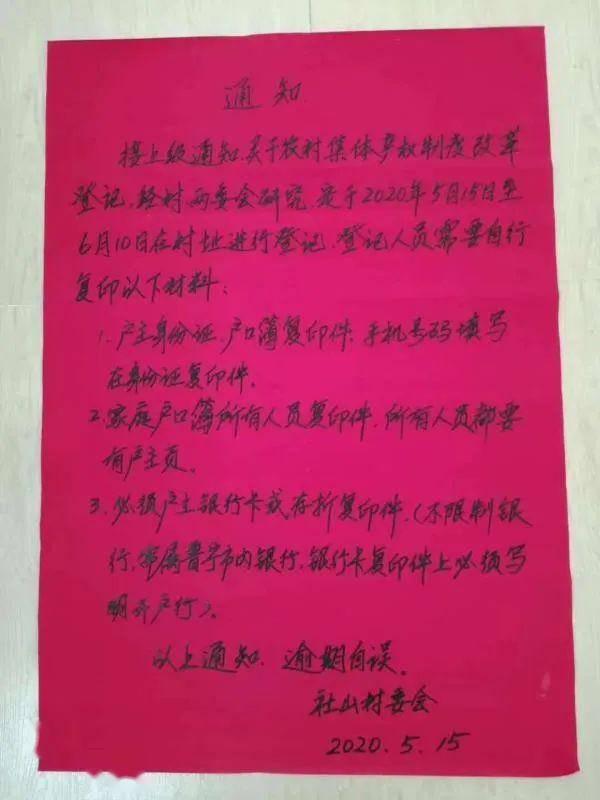 通知
接上级通知、关于农村集体产权制度改革
登记,经村两委会研究,定于2020年5月15日至
6月10日在村址进行登记,登记人员需要自行
复印以下材料:
1、户主身份证、户口簿复印件,手机号码填写
在身份证复印件。
2、家庭户口簿所有人员复印件,所有人员都要
有户主页。
3、必须户主银行卡或存折复印件,(不限制银
行,但属普宁市内银行,银行卡复印件上必须写
明开户行)。
以上通知,逾期自误。
社山村委会
2020.5.15